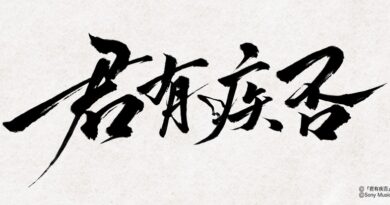 君有疾否
©「君有疾否」
©Sony Music